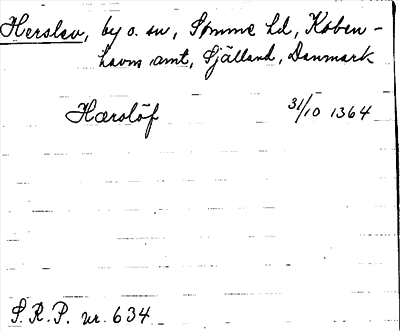 Herslev, by o. sn, Sömme hd, Köben-
havns amt, Själland, Danmark
Hærslöf 31/10 1364
S.R.P. nr. 634